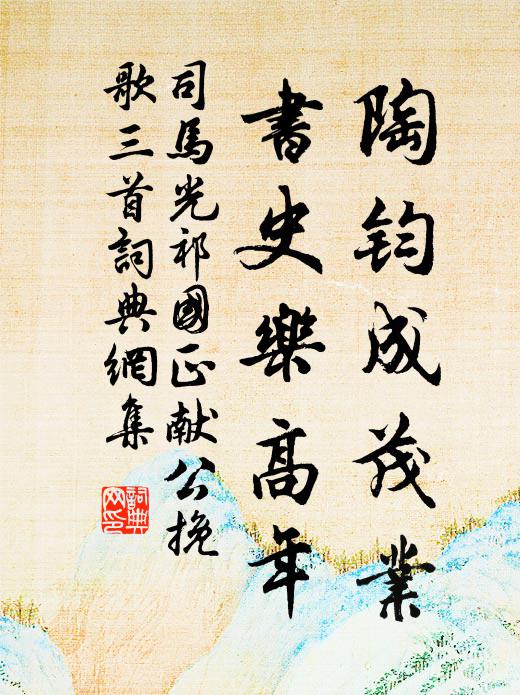 陶钧成茂業
書史樂高年
司馬光祁國正献公挽
歌三首詞典網集
詞典
网印